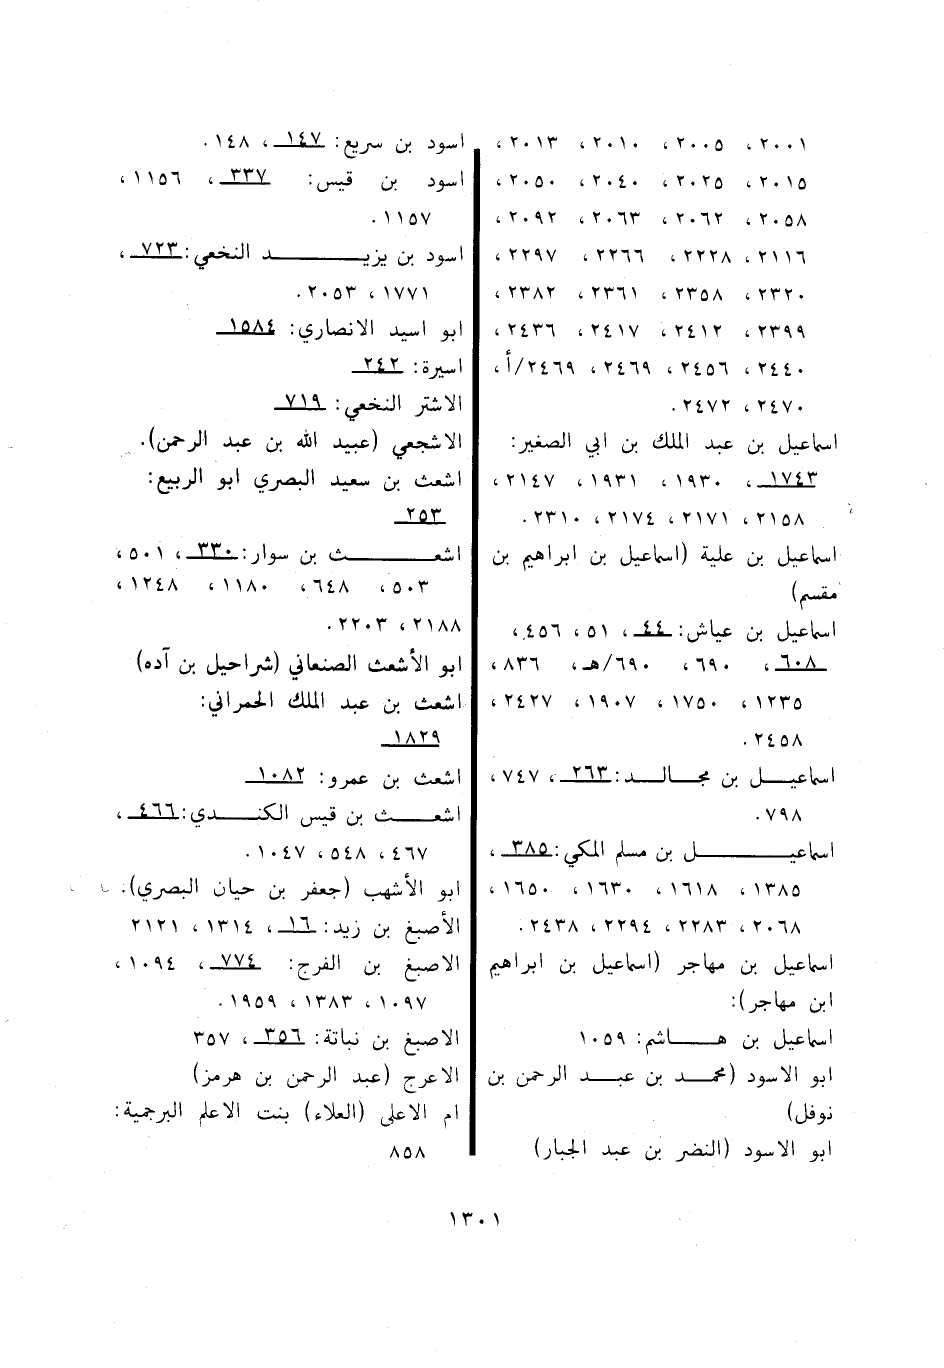 ٢٠٠١، ٢٠٠٥، ٢٠١٠، ٢٠١٣،
٢٠١٥، ٢٠٢٥، ٢٠٤٠، ٢٠٥٠،
٢٠٥٨، ٢٠٦٢، ٢٠٦٣، ٢٠٩٢،
٢١١٦، ٢٢٢٨، ٢٢٦٦، ٢٢٩٧،
٢٣٢٠، ٢٣٥٨، ٢٣٦١، ٢٣٨٢،
٢٣٩٩، ٢٤١٢، ٢٤١٧، ٢٤٣٦،
٢٤٤٠، ٢٤٥٦، ٢٤٦٩، ٢٤٦٩/أ،
٢٤٧٠، ٢٤٧٢.
اسماعيل بن عبد الملك بن ابي الصغير:
١٧٤٣، ١٩٣٠، ١٩٣١، ٢١٤٧،
٢١٥٨، ٢١٧١، ٢١٧٤، ٢٣١٠.
اسماعيل بن علية (اسماعيل بن ابراهيم بن
مقسم)
اسماعيل بن عياش: ٤٤، ٥١، ٤٥٦،
٦٠٨، ٦٩٠، ٦٩٠/هـ، ٨٣٦،
١٢٣٥، ١٧٥٠، ١٩٠٧، ٢٤٢٧،
٢٤٥٨.
اسماعيل بن مجالد: ٢٦٣، ٧٤٧،
٧٩٨.
اسماعيل بن مسلم المكي: ٣٨٥،
١٣٨٥، ١٦١٨، ١٦٣٠، ١٦٥٠،
٢٠٦٨، ٢٢٨٣، ٢٢٩٤، ٢٤٣٨.
اسماعيل بن مهاجر (اسماعيل بن ابراهيم
ابن مهاجر):
اسماعيل بن هاشم: ١٠٥٩
ابو الاسود (محمد بن عبد الرحمن بن
نوفل)
ابو الاسود (النضر بن عبد الجبار)
اسود بن سريع: ١٤٧، ١٤٨.
اسود بن قيس: ٣٣٧، ١١٥٦،
١١٥٧.
اسود بن يزيد النخعي: ٧٢٣،
١٧٧١، ٢٠٥٣.
ابو اسيد الانصاري: ١٥٨٤
اسيرة: ٢٤٢
الاشتر النخعي: ٧١٩
الاشجعي (عبيد الله بن عبد الرحمن).
اشعث بن سعيد البصري ابو الربيع:
٢٥٣
اشعث بن سوار: ٣٣٠، ٥٠١،
٥٠٣، ٦٤٨، ١١٨٠، ١٢٤٨،
٢١٨٨، ٢٢٠٣.
ابو الأشعث الصنعاني (شراحيل بن آده)
اشعث بن عبد الملك الحمراني:
١٨٢٩
اشعث بن عمرو: ١٠٨٢
اشعث بن قيس الكندي: ٤٦٦،
٤٦٧، ٥٤٨، ١٠٤٧.
ابو الأشهب (جعفر بن حيان البصري).
الأصبغ بن زيد: ١٦، ١٣١٤، ٢١٢١
الاصبغ بن الفرج: ٧٧٤، ١٠٩٤،
١٠٩٧، ١٣٨٣، ١٩٥٩.
الاصبغ بن نباتة: ٣٥٦، ٣٥٧
الاعرج (عبد الرحمن بن هرمز)
ام الاعلى (العلاء) بنت الاعلم البرجمية:
٨٥٨
١٣٠١